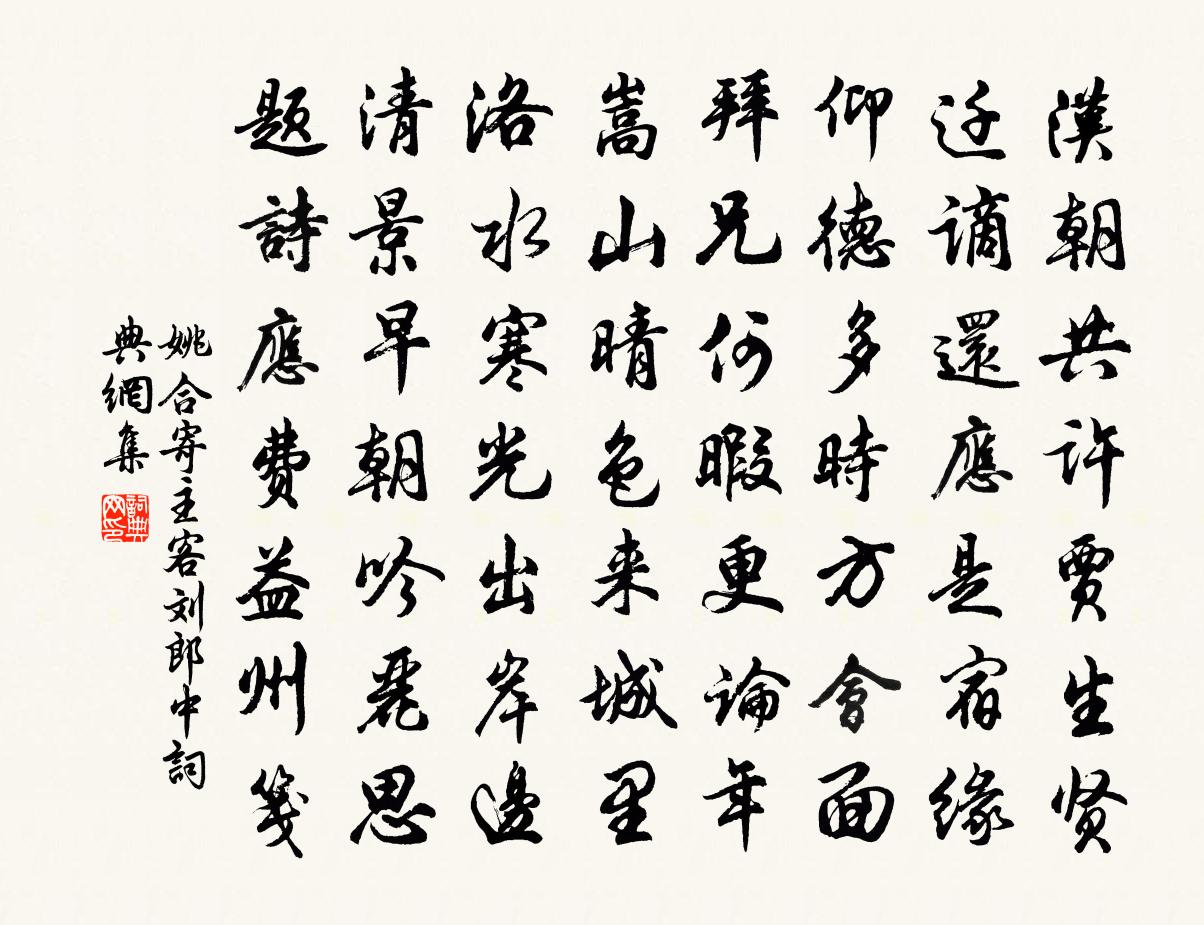 漢朝共許賈生贤
迁谪還應是宿緣
仰德多時方會面
拜兄何暇更論年
嵩山晴色来城里
洛水寒光出岸邊
清景早朝吟麗思
题詩應费益州箋
姚合寄主客刘郎中詞
典網集
詞典
网印